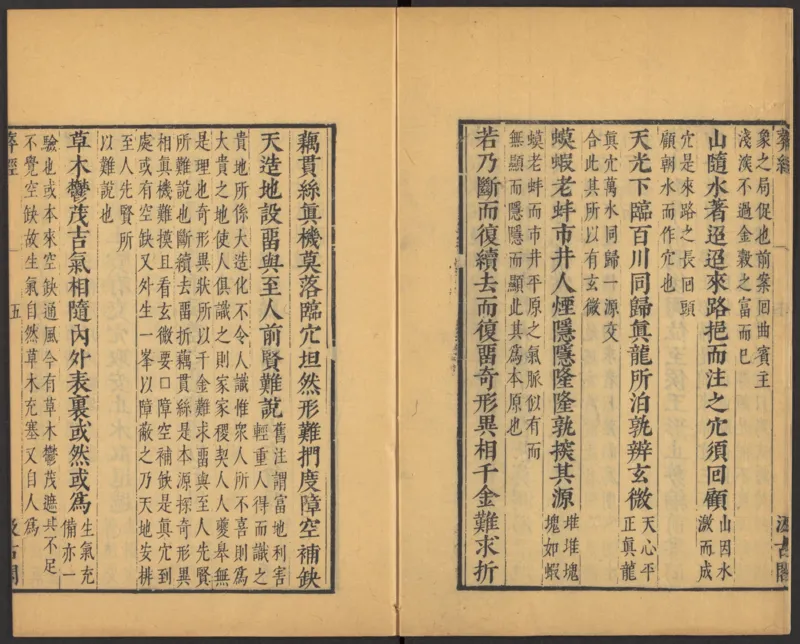 葬經
象之局促也前案回曲賓主
淺淡不過金穀之富而已
山隨水著迢迢來路挹而注之穴須回顧
山因水激而成
穴是來路之長回頭
顧朝水而作穴也
天光下臨百川同歸眞龍所泊孰辨玄微
天心平正眞龍
眞穴萬水同歸一源交
合此其所以有玄微
蟆蝦老蚌市井人煙隱隱隆隆孰探其源
堆堆塊塊如蝦
蟆老蚌而市井平原之氣脈似有而
無顯而隱隱而顯此其爲本原也
若乃斷而復續去而復畱奇形異相千金難求折
汲古閣
藕貫絲眞機莫落臨穴坦然形難捫度障空補缺
天造地設畱與至人前賢難說
舊注謂富地利害
輕重人得而識之
貴地所係大造化不令人識惟衆人所不喜則爲
大貴之地使人俱識之則家家稷契人人夔皋無
是理也奇形異狀所以千金難求畱與至人先賢
所難說也斷續去畱折藕貫絲是本源探奇形異
相眞機難摸且看玄微要口障空補缺是眞穴到
處或有空缺又外生一峯以障蔽之乃天地安排
至人先賢所
以難說也
草木鬱茂吉氣相隨內外表裏或然或爲
生氣充備亦一
驗也或本來空缺通風今有草木鬱茂遮其不足
不覺空缺故生氣自然草木充塞又自人爲
葬經
五
汲古閣